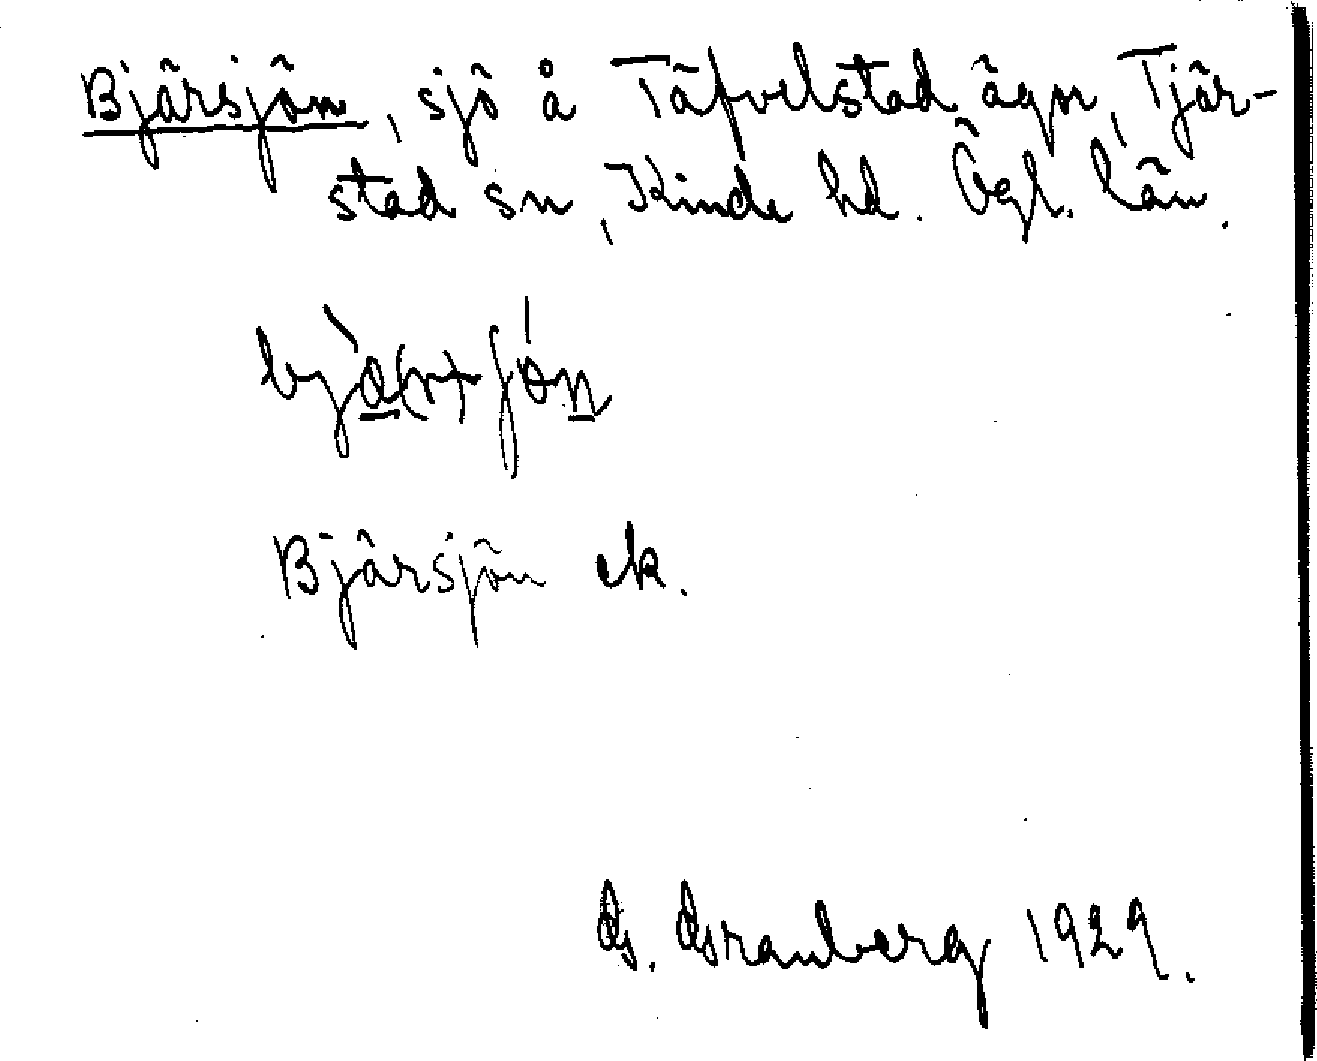 Bjärsjön, sjö å Täfvelstad ägor, Tjär-
stad sn, Kinde hd. Ögl. län.
Bjärsjön ek.
G. Granberg 1929.